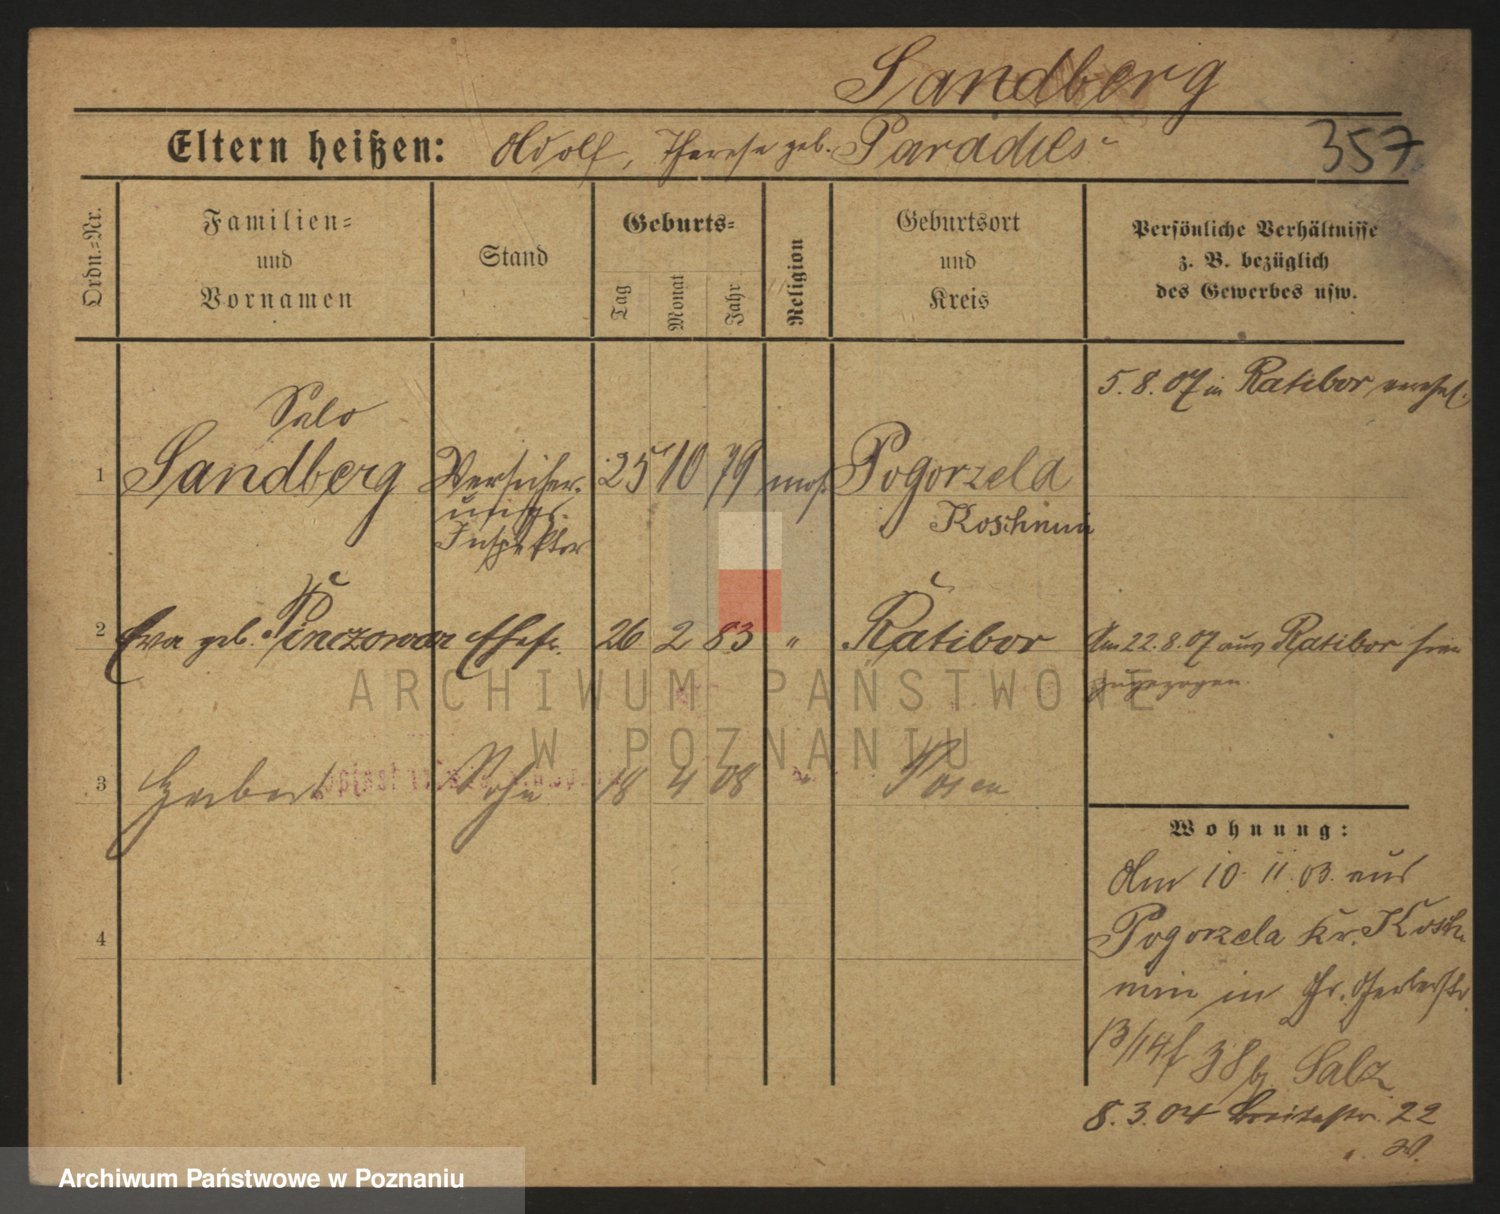 Sandberg
Eltern heißen: Adolf, Therese geb. Paradies
357
Ordn.=Nr.
Familien=
und
Vornamen
Stand
Geburts=
Tag
Monat
Jahr
Religion
Geburtsort
und
Kreis
Persönliche Verhältnisse
z. B. bezüglich
des Gewerbes usw.
5. 8. 07 in Ratibor verehel.
Salo
1 Sandberg Versicher- 25 10 79 mos. Pogorzela
ungs
Koschmin
Inspektor
2 Eva geb. Pinczower Ehefr. 26 2 83 " Ratibor Am 22.8.07 aus Ratibor hier
zugezogen.
3 Herbert Sohn 18 4 08 " Posen
Wohnung:
Am 10. 11. 03. aus
4
Pogorzela Kr. Kosch
min in Gr. Gerberstr.
13/14 Salz
8. 3. 04 Breitestr. 22
ARCHIWUM PAŃSTWOWE
W POZNANIU
Archiwum Państwowe w Poznaniu